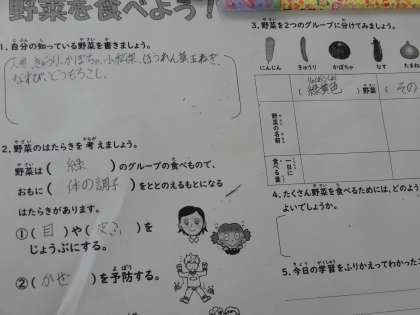 野菜を食べよう!
1. 自分の知っている野菜を書きましょう。
きゅうり、かぼちゃ、小松菜、ほうれん草、玉ねぎ、
とうもろこし、
2. 野菜のはたらきを考えましょう。
野菜は(緑)のグループの食べもので、
おもに(体の調子)をととのえるもとになる
はたらきがあります。
①(目)や( )を
じょうぶにする。
②(かぜ)を予防する。
3. 野菜を2つのグループに分けてみましょう。
にんじん きゅうり かぼちゃ なす たまね
(緑黄色)野菜 (その
野菜の名前
一日に食べる量
4. たくさん野菜を食べるためには、どのよう
よいでしょうか。
5. 今日の学習をふりかえってわかったこ